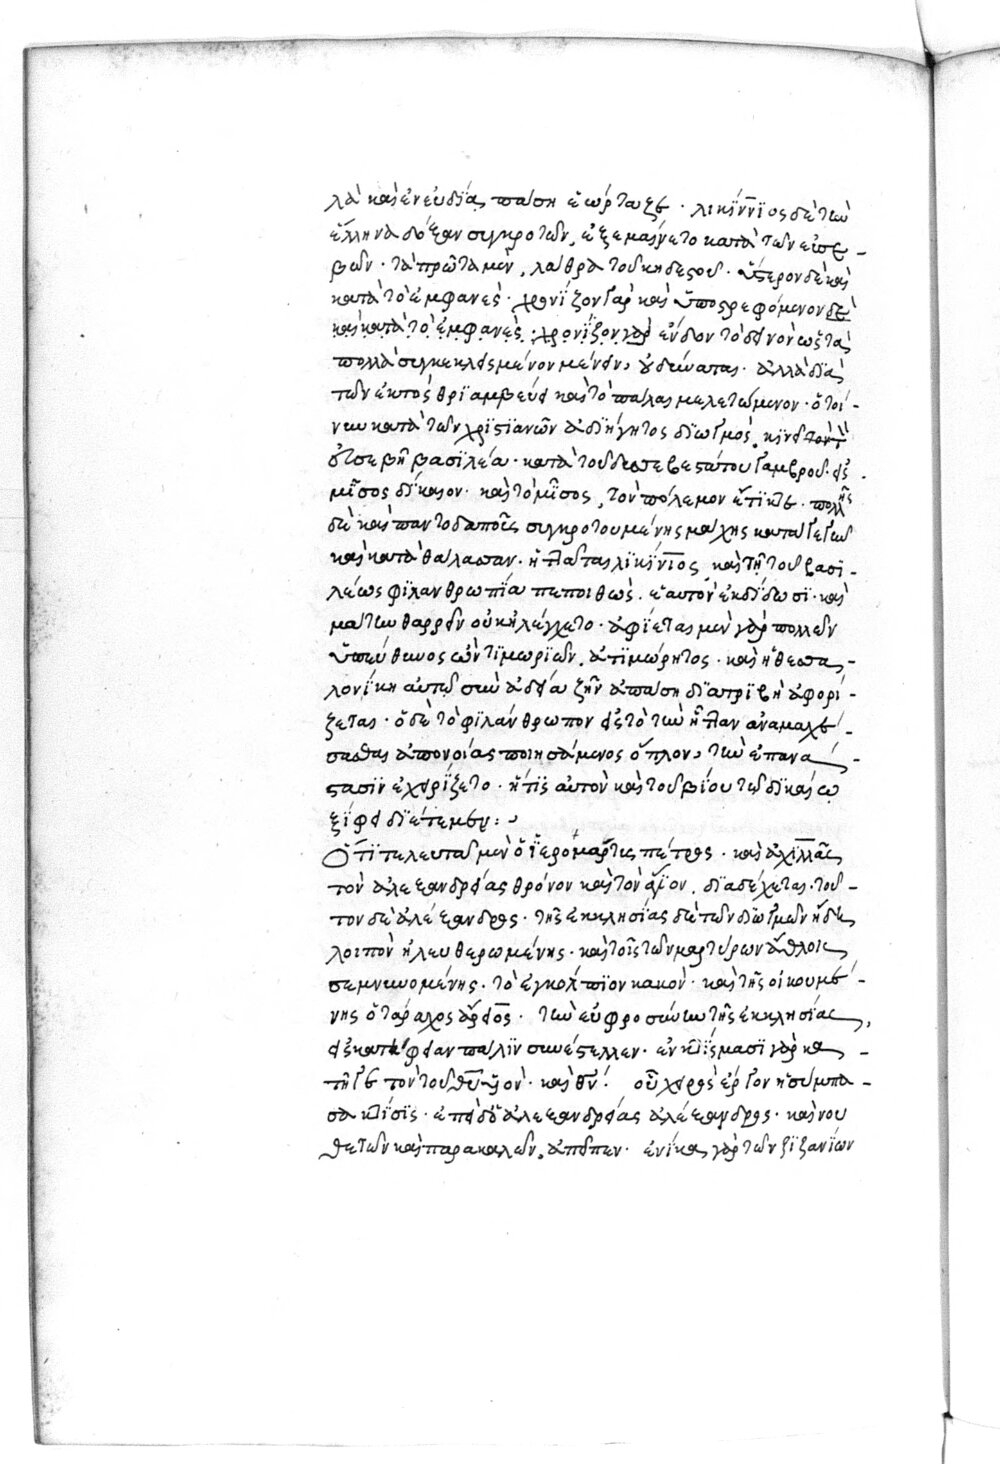 λὰ καὶ ἐν εὐδίᾳ πάσῃ ἑώρταζε. λικίννιος δὲ τὴν
ἕλληνα δόξαν συγκροτῶν, ἐξεμαίνετο κατὰ τῶν εὐσε-
βῶν. τὰ πρῶτα μὲν, λάθρα τοῦ κηδεστοῦ. ὕστερον δὲ καὶ
κατὰ τὸ ἐμφανές. χρονίζον γὰρ καὶ ὑποστρεφόμενον δὲ
καὶ κατὰ τὸ ἐμφανὲς. χρονίζον γὰρ ἔνδον τὸ δεινὸν ὡς τὰ
πολλὰ συγκεκλεισμένον μένειν, οὐ δύναται. ἀλλὰ διὰ
τῶν ἐκτὸς θριαμβεύει καὶ τὸ πάλαι μελετώμενον. ὅ τοί-
νυν κατὰ τῶν χριστιανῶν ἀδιήγητος διωγμός, κινεῖ τὸν
εὐσεβῆ βασιλέα. κατὰ τοῦ δυσσεβεστάτου γαμβροῦ. εἰς
μῖσος δίκαιον. καὶ τὸ μῖσος, τὸν πόλεμον ἔτικτε. πολλῆς
δὲ καὶ παντοδαποῖς συγκροτουμένης μάχης κατά τε γῆν
καὶ κατὰ θάλασσαν. ἡττᾶται λικίννιος, καὶ τῇ τοῦ βασι-
λέως φιλανθρωπίᾳ πεποιθὼς. ἑαυτὸν ἐκδίδωσι. καὶ
μάτην θαρρῶν οὐκ ἠλέγχετο. ἀφίεται μὲν γὰρ πολλῶν
ὑπεύθυνος ὢν τιμωριῶν, ἀτιμώρητος. καὶ ἡ θεσσα-
λονίκη αὐτῷ σὺν ἀδείᾳ ζῆν ἁπάσῃ διατριβὴ ἀφορί-
ζεται. ὁ δὲ τὸ φιλάνθρωπον εἰς τὸ τὴν ἧτταν ἀναμαχέ-
σασθαι ἀπονοίας ποιησάμενος ὅπλον, τὴν ἐπανά-
στασιν ἐχαρίζετο. ἥτις αὐτὸν καὶ τοῦ βίου τῷ δικαίῳ
ξίφει διέτεμεν:
Ὅτι τελευτᾷ μὲν ὁ ἱερομάρτυς πέτρος. καὶ ἀχιλλᾶς
τὸν ἀλεξανδρείας θρόνον καὶ τὸν ἅγιον, διαδέχεται. τοῦ-
τον δὲ ἀλέξανδρος. τῆς ἐκκλησίας δὲ τῶν διωγμῶν ἤδη
λοιπὸν ἠλευθερωμένης. καὶ τοῖς τῶν μαρτύρων ἄθλοις
σεμνυνομένης. τὸ ἐγκόλπιον κακὸν. καὶ τῆς οἰκουμέ-
νης ὁ τάραχος ἄρειος. τὴν εὐφροσύνην τῆς ἐκκλησίας,
εἰς κατήφειαν πάλιν συνέστελλεν. ἐν κτίσμασι γὰρ κα-
τῆγε τὸν τοῦ θεοῦ υἱὸν. καὶ θν. οὗ χειρὸς ἔργον ἡ σύμπα-
σα κτίσις. ἐπεὶ δὲ ὁ ἀλεξανδρείας ἀλέξανδρος. καὶ νου
θετῶν καὶ παρακαλῶν, ἀπεῖπεν. ἐνίκα γὰρ τῶν ζιζανίων